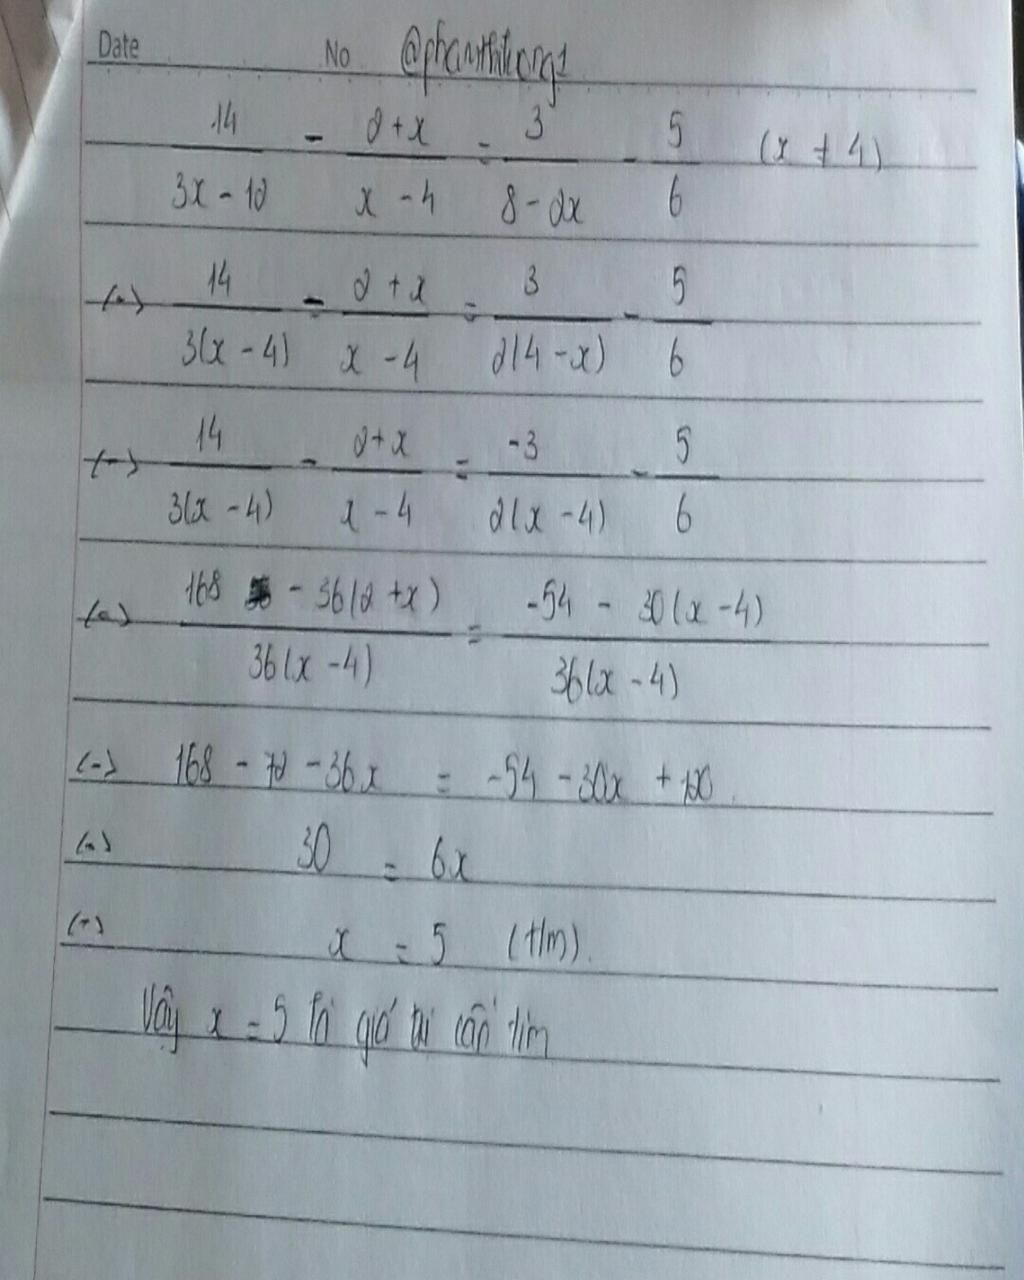 Date No @phanthihong1
14/(3x - 12) - (2+x)/(x - 4) = 3/(8 - 2x) - 5/6 (x ≠ 4)
<-> 14/(3(x - 4)) - (2+x)/(x - 4) = 3/(2(4 - x)) - 5/6
<-> 14/(3(x - 4)) - (2+x)/(x - 4) = -3/(2(x - 4)) - 5/6
<-> (168 - 36(2+x))/(36(x - 4)) = (-54 - 30(x - 4))/(36(x - 4))
<-> 168 - 72 - 36x = -54 - 30x + 120
<-> 30 = 6x
<-> x = 5 (t/m).
Vậy x = 5 là giá trị cần tìm